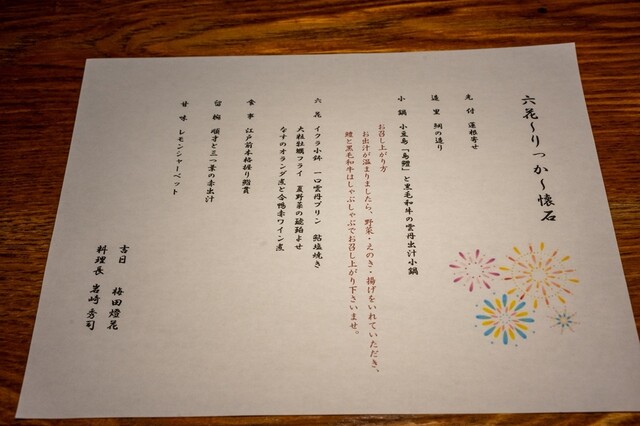 六花～りっか～懐石
先付 蓮根寄せ
造里 鯛の造り
小鍋 小豆島「島鱧」と黒毛和牛の雲丹出汁小鍋
お召し上がり方
お出汁が温まりましたら、野菜・えのき・揚げをいれていただき、
鱧と黒毛和牛はしゃぶしゃぶでお召し上がり下さいませ。
六花 イクラ小鉢 一口雲丹プリン 鮎塩焼き
大粒牡蠣フライ 夏野菜の琥珀よせ
なすのオランダ煮と合鴨赤ワイン煮
食事 江戸前本格握り鮨六貫
留椀 順才と三つ葉の赤出汁
甘味 レモンシャーベット
吉日 梅田燈花
料理長 岩崎秀司